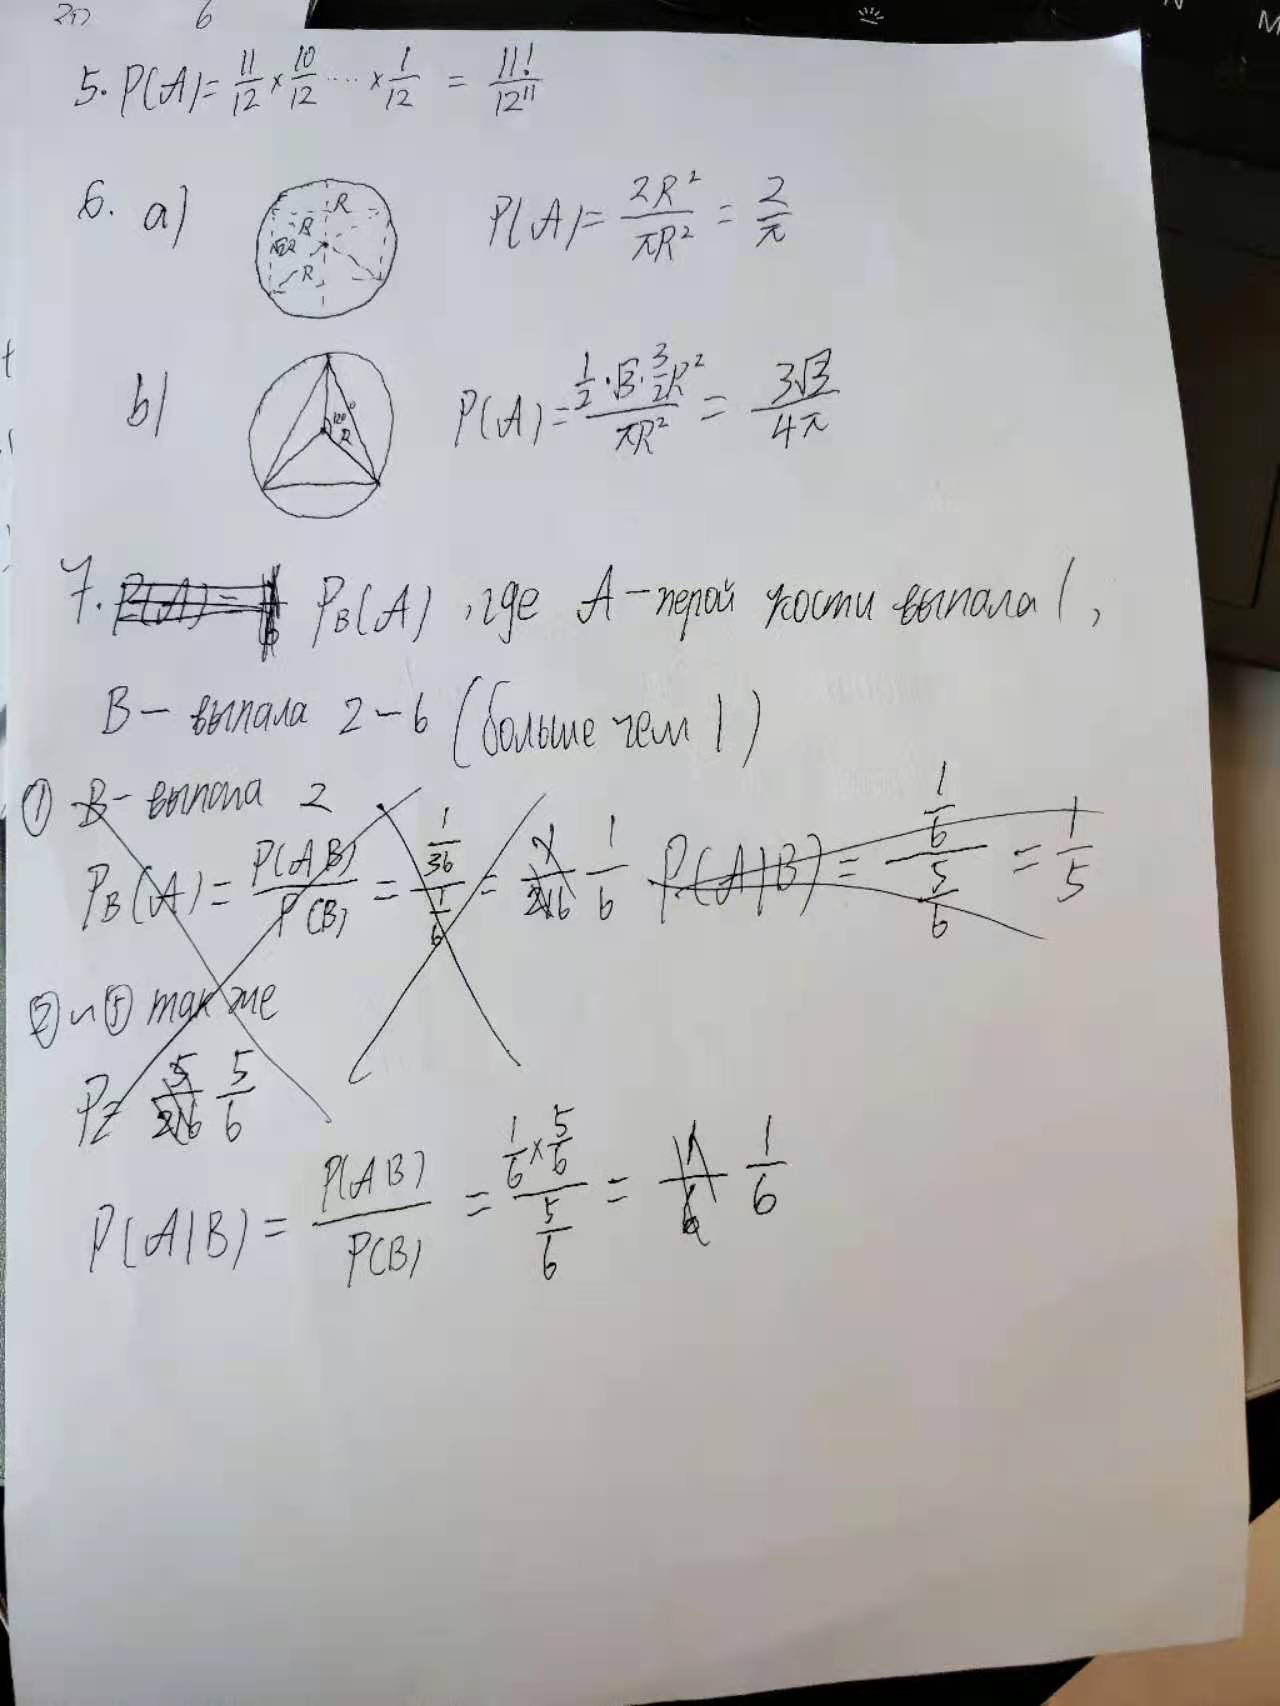 6
5. P(A) = 11/12 × 10/12 ···· × 1/12 = 11!/12¹¹
6. a)
R
R
R
P(A) = 2R²/πR² = 2/π
b)
120°
R
P(A) = (1/2 · √3 · 3/2 R²)/πR² = 3√3/4π
7. P(A) = 1/6 P_B(A), где A - перой кости выпала 1,
B - выпала 2-6 (больше чем 1)
① B - выпала 2
P_B(A) = P(AB)/P(B) = (1/36)/(1/6) = 1/216 1/6 P(A|B) = (1/6)/(5/6) = 1/5
② и ⑤ так же
P= 5/216 5/6
P(A|B) = P(AB)/P(B) = (1/6 × 5/6)/(5/6) = 1/6 1/6